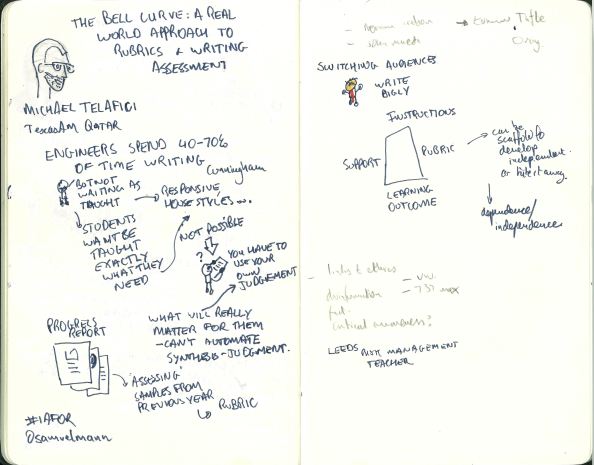 THE BELL CURVE: A REAL
WORLD APPROACH TO
RUBRICS & WRITING
ASSESSMENT
MICHAEL TELAFICI
TexasAM QATAR
ENGINEERS SPEND 40-70%
OF TIME WRITING
Cunningham
BUT NOT
WRITING AS
TAUGHT
RESPONSIVE,
HOUSE STYLES...
STUDENTS
WANT BE
TAUGHT
EXACTLY
WHAT THEY
NEED
NOT POSSIBLE
?
YOU HAVE TO
USE YOUR
OWN
JUDGEMENT
WHAT WILL REALLY
MATTER FOR THEM
- CAN'T AUTOMATE
SYNTHESIS - JUDGMENT.
PROGRESS
REPORT
'ASSESSING'
SAMPLES FROM
PREVIOUS YEAR
RUBRIC
#IAFOR
@samuelmann
SWITCHING AUDIENCES
WRITE
BIGLY
INSTRUCTIONS
SUPPORT
RUBRIC
LEARNING
OUTCOME
can be
scaffold to
develop
independent.
or take it away.
dependence/
independence
links to ethics
- VW.
- 737 max
critical awareness?
LEEDS RISK MANAGEMENT
TEACHER